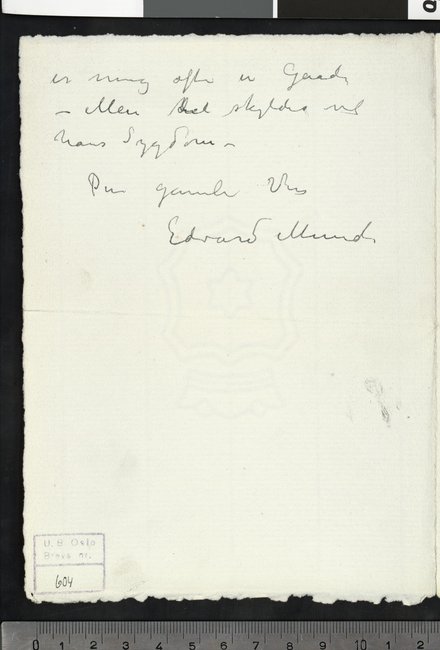 er mig ofte en Gaade
– Men det skyldes vel
hans Sygdom –
Din gamle Ven
Edvard Munch
U. B. Oslo
Brevs. nr.
604
0 1 2 3 4 5 6 7 8 9 10 11 12